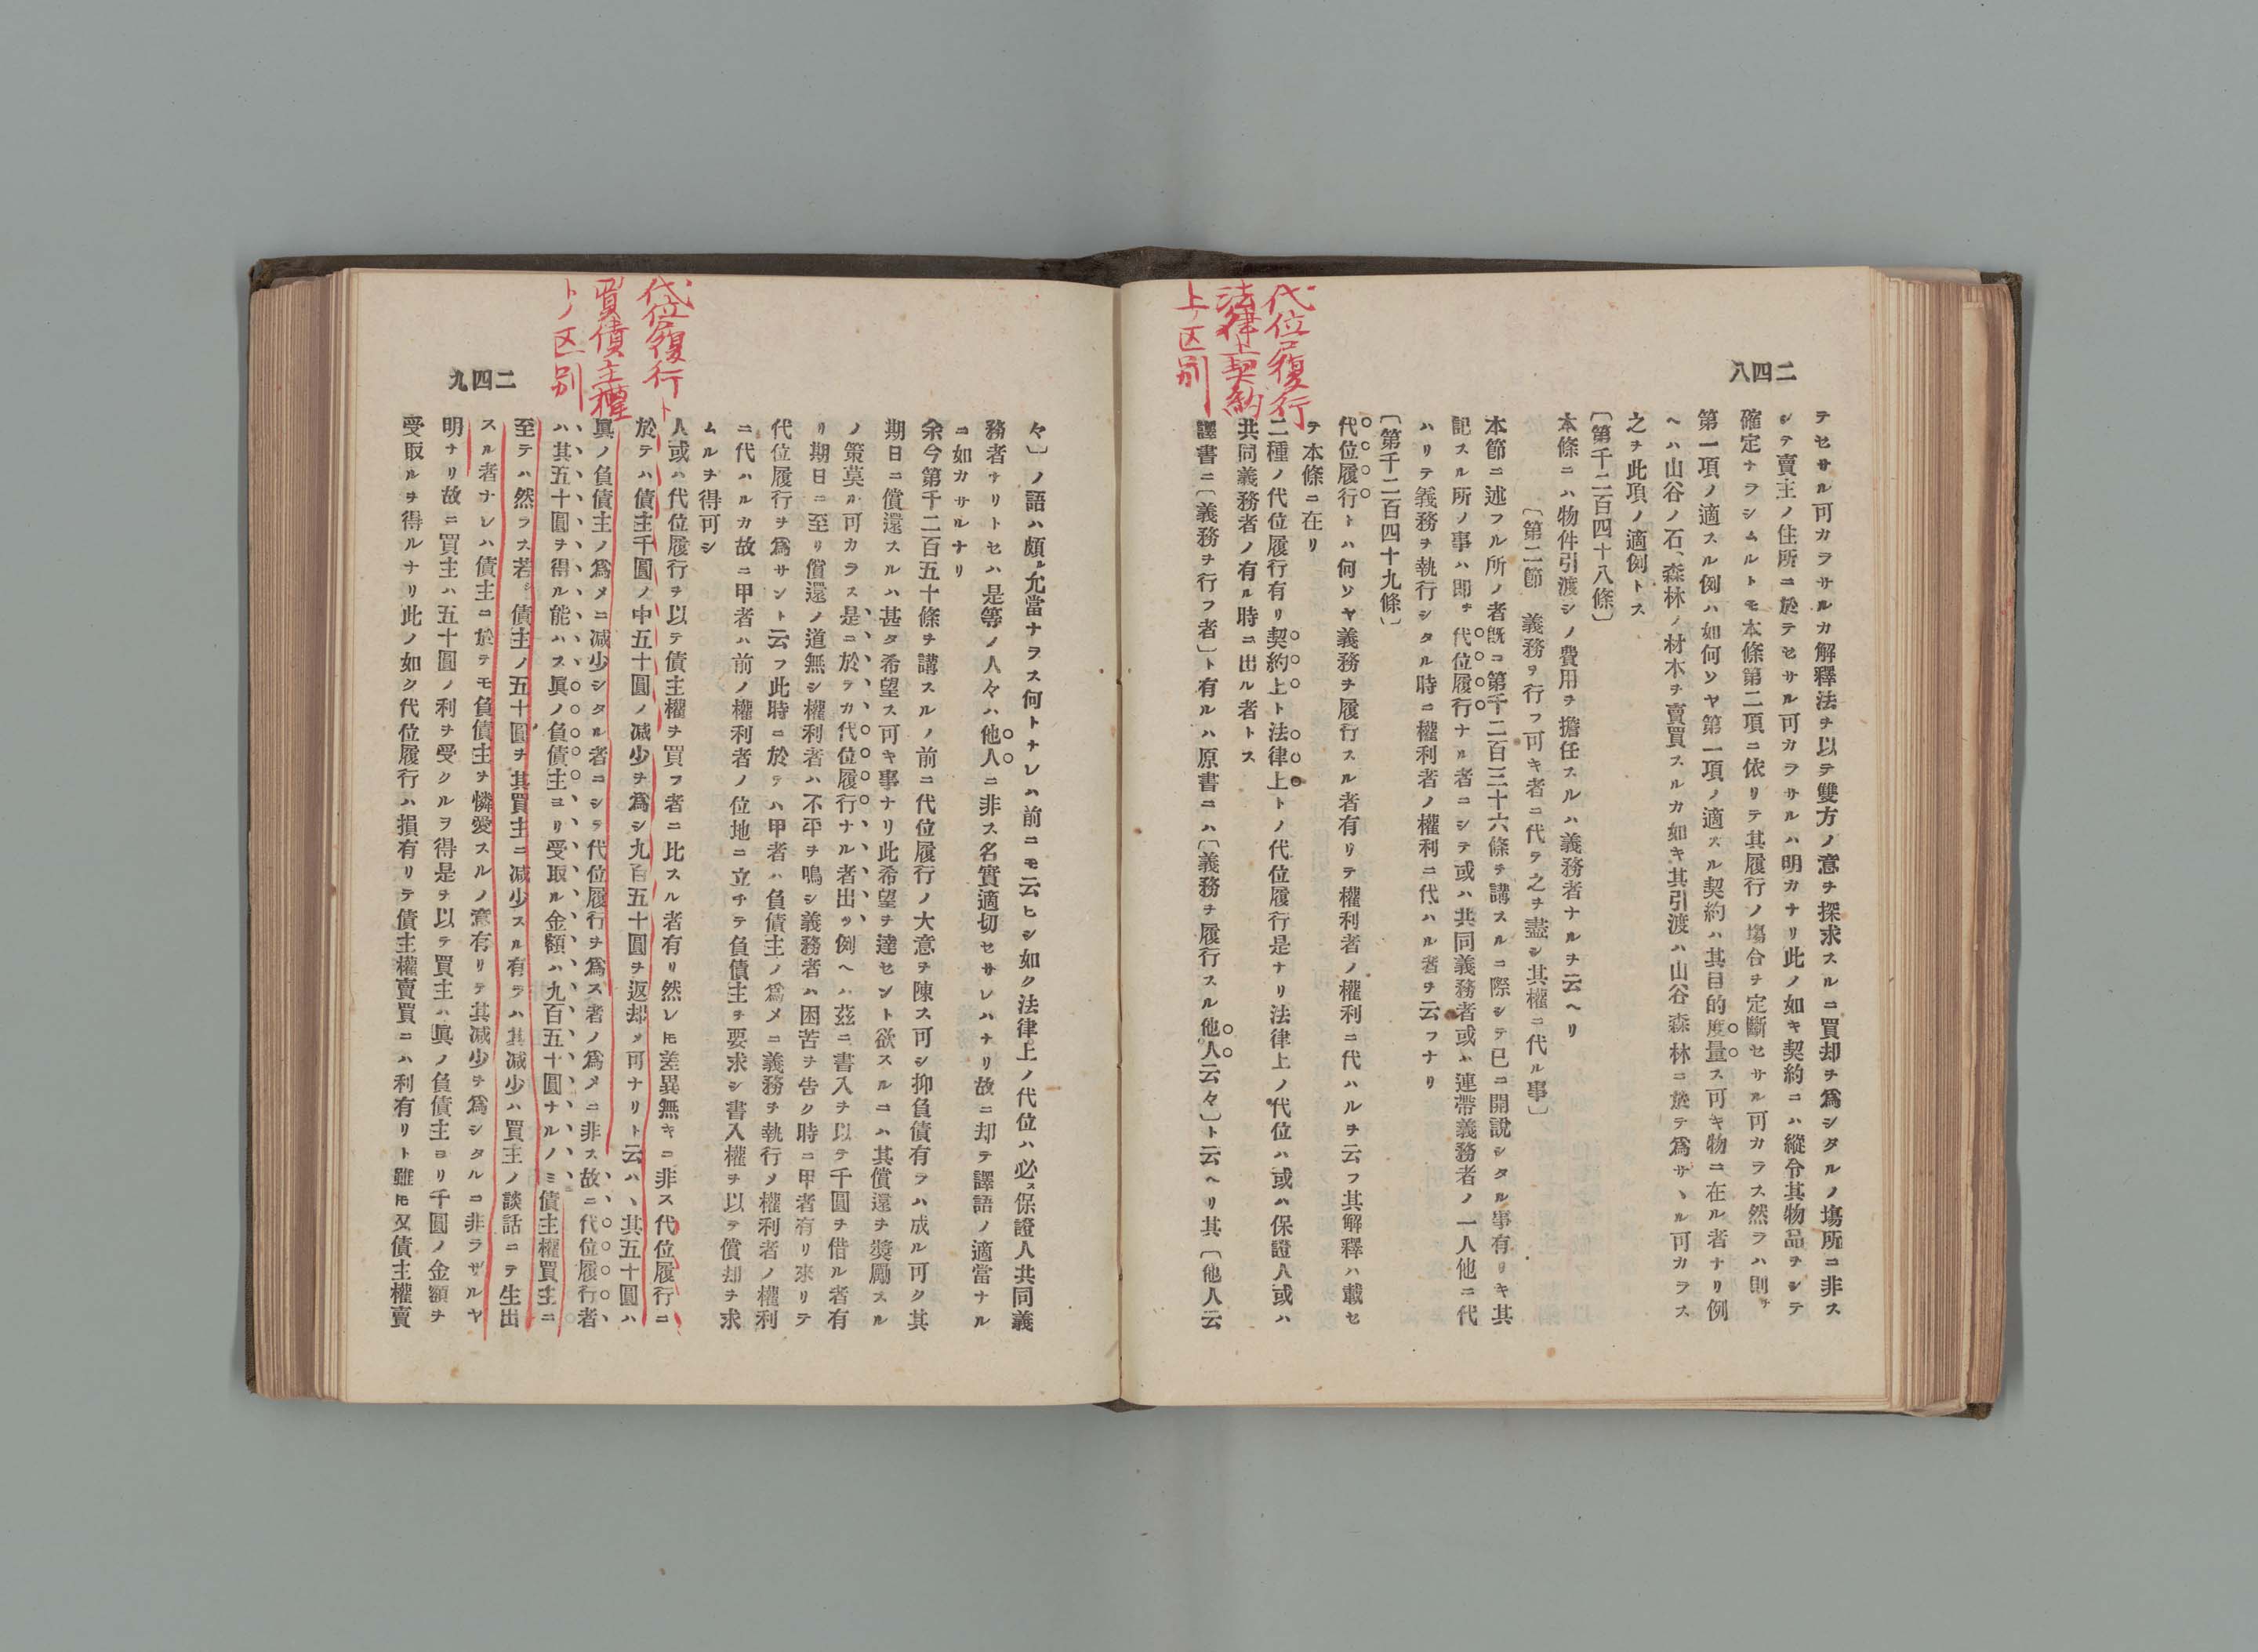 代位履行
法律上契約
上ノ区別
二四八
テセサル可カラサルカ解釋法ヲ以テ雙方ノ意ヲ探求スルニ買却ヲ爲シタルノ塲所ニ非ス
シテ賣主ノ住所ニ於テセサル可カラサルハ明カナリ此ノ如キ契約ニハ縱令其物品ヲシテ
確定ナラシムルトモ本條第二項ニ依リテ其履行ノ塲合ヲ定斷セサル可カラス然ラハ則チ
第一項ノ適スル例ハ如何ソヤ第一項ノ適スル契約ハ其目的度量ス可キ物ニ在ル者ナリ例
ヘハ山谷ノ石、森林ノ材木ヲ賣買スルカ如キ其引渡ハ山谷森林ニ於テ爲サヽル可カラス
之ヲ此項ノ適例トス
〔第千二百四十八條〕
本條ニハ物件引渡シノ費用ヲ擔任スルハ義務者ナルヲ云ヘリ
〔第二節　義務ヲ行フ可キ者ニ代テ之ヲ盡シ其權ニ代ル事〕
本節ニ述フル所ノ者既ニ第千二百三十六條ヲ講スルニ際シテ已ニ開説シタル事有リキ其
記スル所ノ事ハ即チ代位履行ナル者ニシテ或ハ共同義務者或ハ連帶義務者ノ一人他ニ代
ハリテ義務ヲ執行シタル時ニ權利者ノ權利ニ代ハル者ヲ云フナリ
〔第千二百四十九條〕
代位履行トハ何ソヤ義務ヲ履行スル者有リテ權利者ノ權利ニ代ハルヲ云フ其解釋ハ載セ
テ本條ニ在リ
二種ノ代位履行有リ契約上ト法律上トノ代位履行是ナリ法律上ノ代位ハ或ハ保證人或ハ
共同義務者ノ有ル時ニ出ル者トス
譯書ニ〔義務ヲ行フ者〕ト有ルハ原書ニハ〔義務ヲ履行スル他人云々〕ト云ヘリ其〔他人云
代位履行ト
買債主權
トノ区別
二四九
々〕ノ語ハ頗ル允當ナラス何トナレハ前ニモ云ヒシ如ク法律上ノ代位ハ必ス保證人共同義
務者ナリトセハ是等ノ人々ハ他人ニ非ス名實適切セサレハナリ故ニ却テ譯語ノ適當ナル
ニ如カサルナリ
余今第千二百五十條ヲ講スルノ前ニ代位履行ノ大意ヲ陳ス可シ抑負債有ラハ成ル可ク其
期日ニ償還スルハ甚タ希望ス可キ事ナリ此希望ヲ達セント欲スルニハ其償還ヲ奬勵スル
ノ策莫ル可カラス是ニ於テカ代位履行ナル者出ツ例ヘハ茲ニ書入ヲ以テ千圓ヲ借ル者有
リ期日ニ至リ償還ノ道無シ權利者ハ不平ヲ鳴シ義務者ハ困苦ヲ告ク時ニ甲者有リ來リテ
代位履行ヲ爲サント云フ此時ニ於テハ甲者ハ負債主ノ爲メニ義務ヲ執行ノ權利者ノ權利
ニ代ハルカ故ニ甲者ハ前ノ權利者ノ位地ニ立チテ負債主ヲ要求シ書入權ヲ以テ償却ヲ求
ムルヲ得可シ
人或ハ代位履行ヲ以テ債主權ヲ買フ者ニ比スル者有リ然レ𪜈差異無キニ非ス代位履行ニ
於テハ債主千圓ノ中五十圓ノ减少ヲ爲シ九百五十圓ヲ返却ノ可ナリト云ハヽ其五十圓ハ
眞ノ負債主ノ爲メニ减少シタル者ニシテ代位履行ヲ爲ス者ノ爲メニ非ス故ニ代位履行者
ハ其五十圓ヲ得ル能ハス眞ノ負債主ヨリ受取ル金額ハ九百五十圓ナルノミ債主權買主ニ
至テハ然ラス若シ債主ノ五十圓ヲ其買主ニ减少スル有ラハ其减少ハ買主ノ談話ニテ生出
スル者ナレハ債主ニ於テモ負債主ヲ憐愛スルノ意有リテ其减少ヲ爲シタルニ非ラザルヤ
明ナリ故ニ買主ハ五十圓ノ利ヲ受クルヲ得是ヲ以テ買主ハ眞ノ負債主ヨリ千圓ノ金額ヲ
受取ルヲ得ルナリ此ノ如ク代位履行ハ損有リテ債主權賣買ニハ利有リト雖𪜈又債主權賣